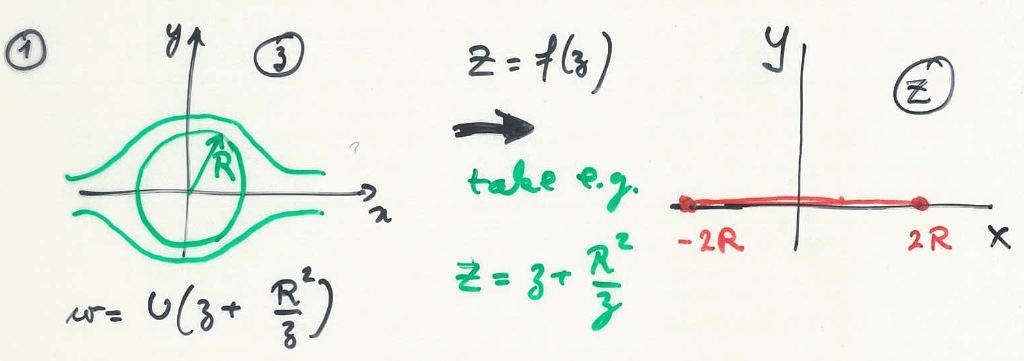 ①
y
③
R
x
w = U(z + R²/z)
Z = f(z)
take e.g.
Z = z + R²/z
Y
Z
-2R
2R
X